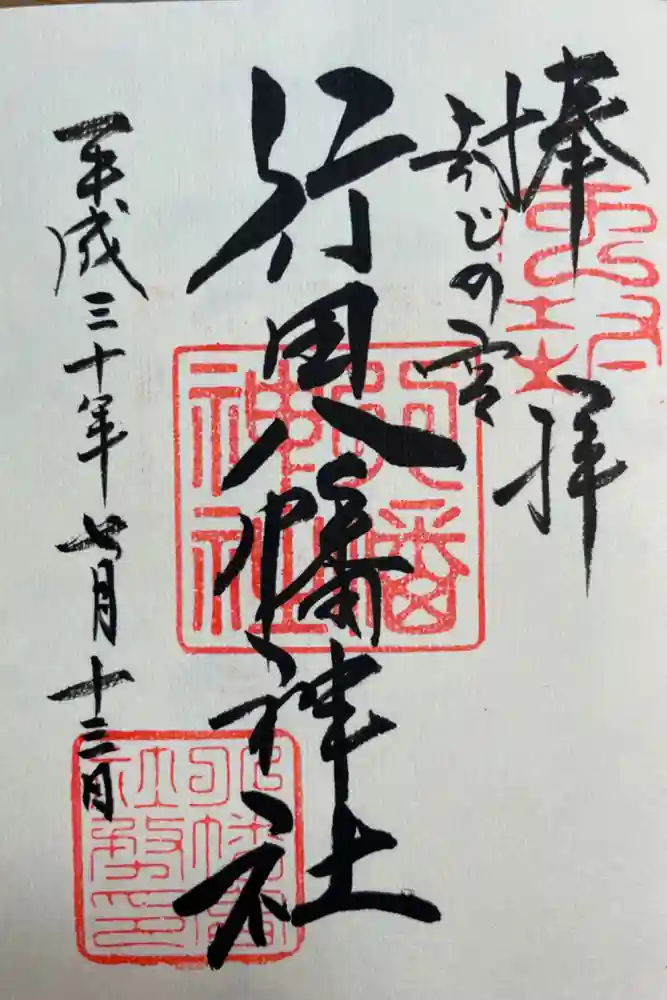 奉拝
封じの宮
行田八幡神社
平成三十年七月十三日